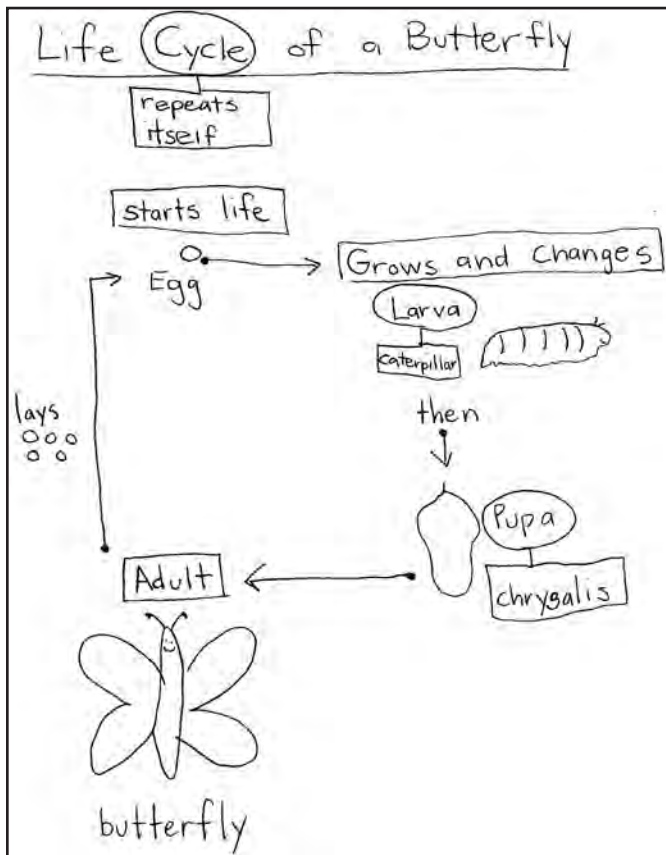 Life Cycle of a Butterfly
repeats
itself
starts life
Egg
Grows and Changes
Larva
caterpillar
then
lays
Pupa
chrygalis
Adult
butterfly